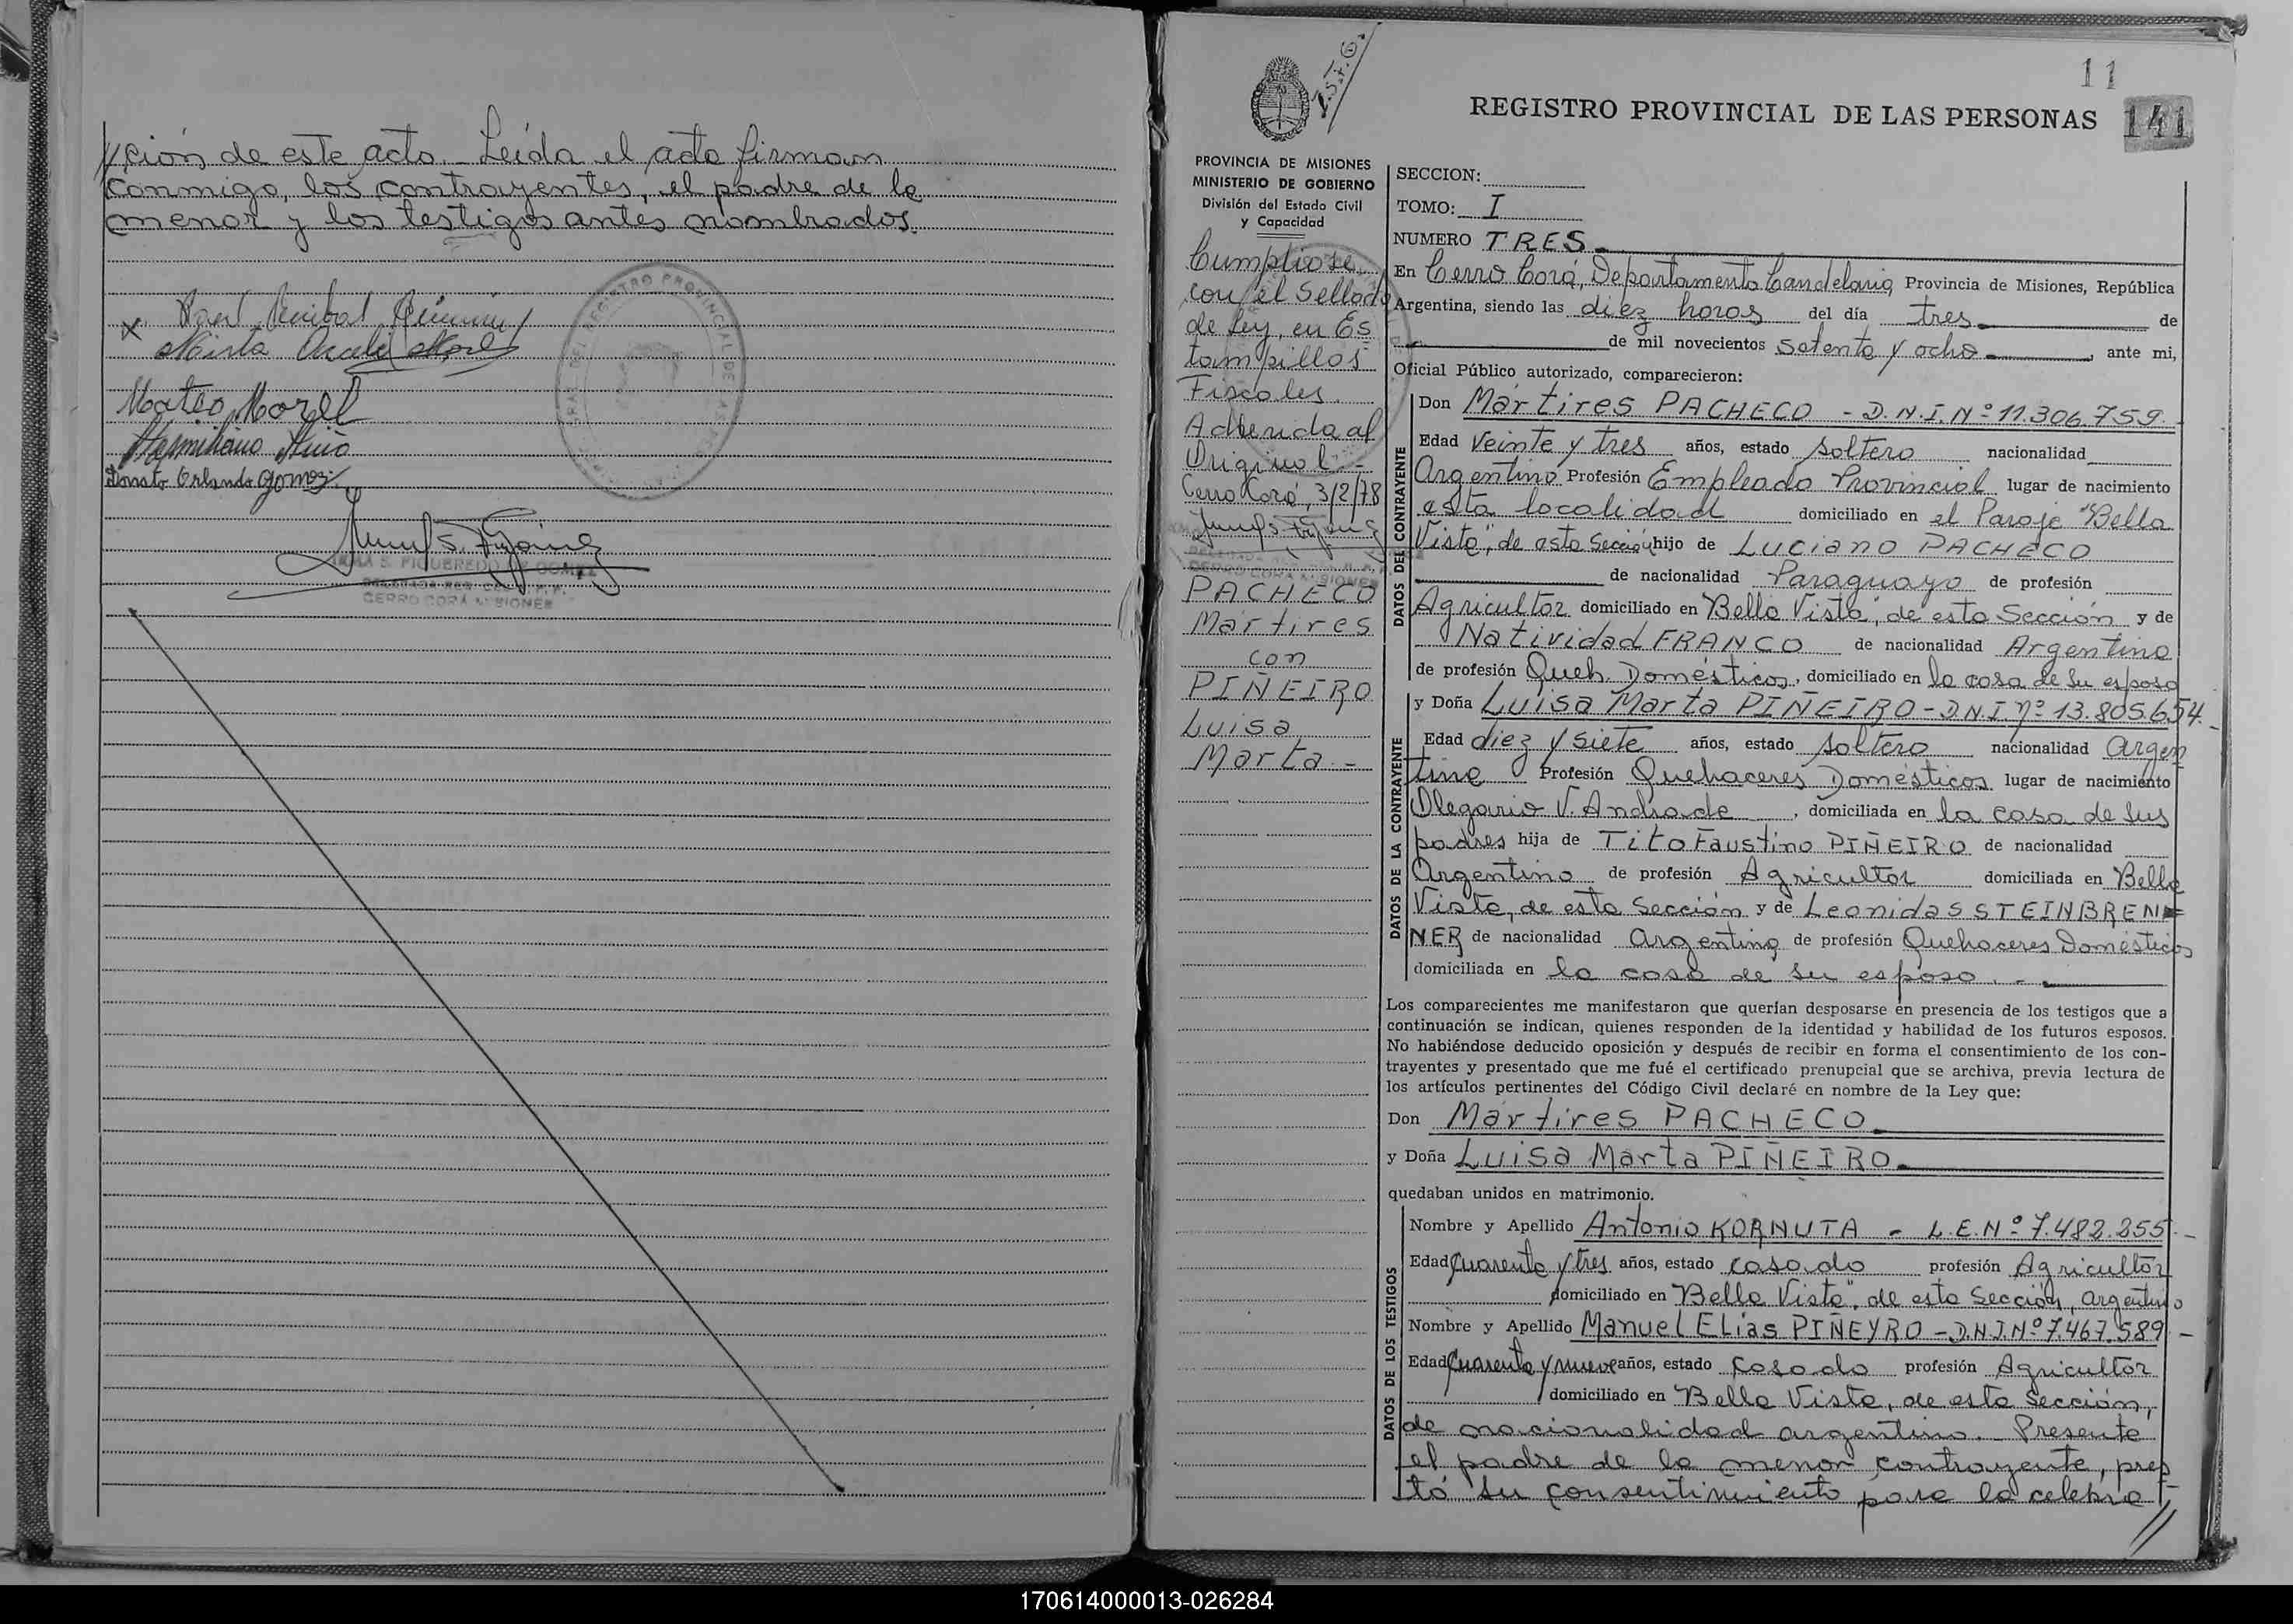 ción de este acto. Leída el acta firman
conmigo, los contrayentes, el padre de la
menor y los testigos antes nombrados.
Mateo Morel
Orlando Gomez
CERRO CORÁ MISIONES
11
REGISTRO PROVINCIAL DE LAS PERSONAS 141
PROVINCIA DE MISIONES
MINISTERIO DE GOBIERNO
División del Estado Civil
y Capacidad
Cumpliose
con el Sellado
de Ley, en Es
tampillas
Fiscales
Adherida al
Original.-
Cerro Corá, 3/2/78
CERRO CORA MISIONES
PACHECO
Mártires
con
PIÑEIRO
Luisa
Marta.-
SECCION:
TOMO: I
NUMERO TRES
En Cerro Corá, Departamento Candelaria Provincia de Misiones, República
Argentina, siendo las diez horas del día tres de
de mil novecientos setenta y ocho, ante mi,
Oficial Público autorizado, comparecieron:
DATOS DEL CONTRAYENTE
Don Mártires PACHECO - D.N.I. Nº 11.306.759.
Edad Veinte y tres años, estado soltero nacionalidad
Argentino Profesión Empleado Provincial lugar de nacimiento
esta localidad domiciliado en el Paraje "Bella
Vista", de esta Sección hijo de Luciano PACHECO
de nacionalidad Paraguayo de profesión
Agricultor domiciliado en Bella Vista, de esta Sección y de
Natividad FRANCO de nacionalidad Argentina
de profesión Queh. Domésticos, domiciliado en la casa de su esposo
DATOS DE LA CONTRAYENTE
y Doña Luisa Marta PIÑEIRO - D.N.I. Nº 13.805.654.-
Edad diez y siete años, estado soltera nacionalidad Argen
tina Profesión Quehaceres Domésticos lugar de nacimiento
Olegario V. Andrade, domiciliada en la casa de sus
padres hija de Tito Faustino PIÑEIRO de nacionalidad
Argentino de profesión Agricultor domiciliada en Bella
Vista, de esta Sección y de Leonidas STEINBREN
NER de nacionalidad argentina de profesión Quehaceres Domésticos
domiciliada en la casa de su esposo.-
Los comparecientes me manifestaron que querían desposarse en presencia de los testigos que a
continuación se indican, quienes responden de la identidad y habilidad de los futuros esposos.
No habiéndose deducido oposición y después de recibir en forma el consentimiento de los con-
trayentes y presentado que me fué el certificado prenupcial que se archiva, previa lectura de
los artículos pertinentes del Código Civil declaré en nombre de la Ley que:
Don Mártires PACHECO
y Doña Luisa Marta PIÑEIRO
quedaban unidos en matrimonio.
DATOS DE LOS TESTIGOS
Nombre y Apellido Antonio KORNUTA - L.E. Nº 7.482.255.-
Edad Cuarenta y tres años, estado casado profesión Agricultor
domiciliado en "Bella Vista", de esta Sección, argentino
Nombre y Apellido Manuel Elías PIÑEYRO - D.N.I. Nº 7.467.589.-
Edad Cuarenta y nueve años, estado casado profesión Agricultor
domiciliado en Bella Vista, de esta Sección,
de nacionalidad argentino.- Presente
el padre de la menor contrayente, pres
tó su consentimiento para la celebra //
170614000013-026284